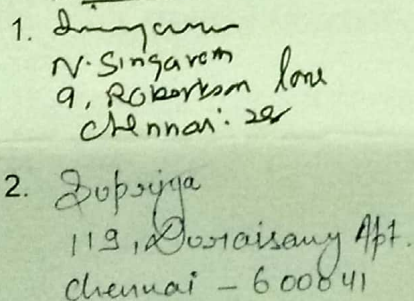 1.
N. Singaram
9, Robertson lane
Chennai. 28
2. Supriya
119, Doraisamy Apt.
Chennai - 600041